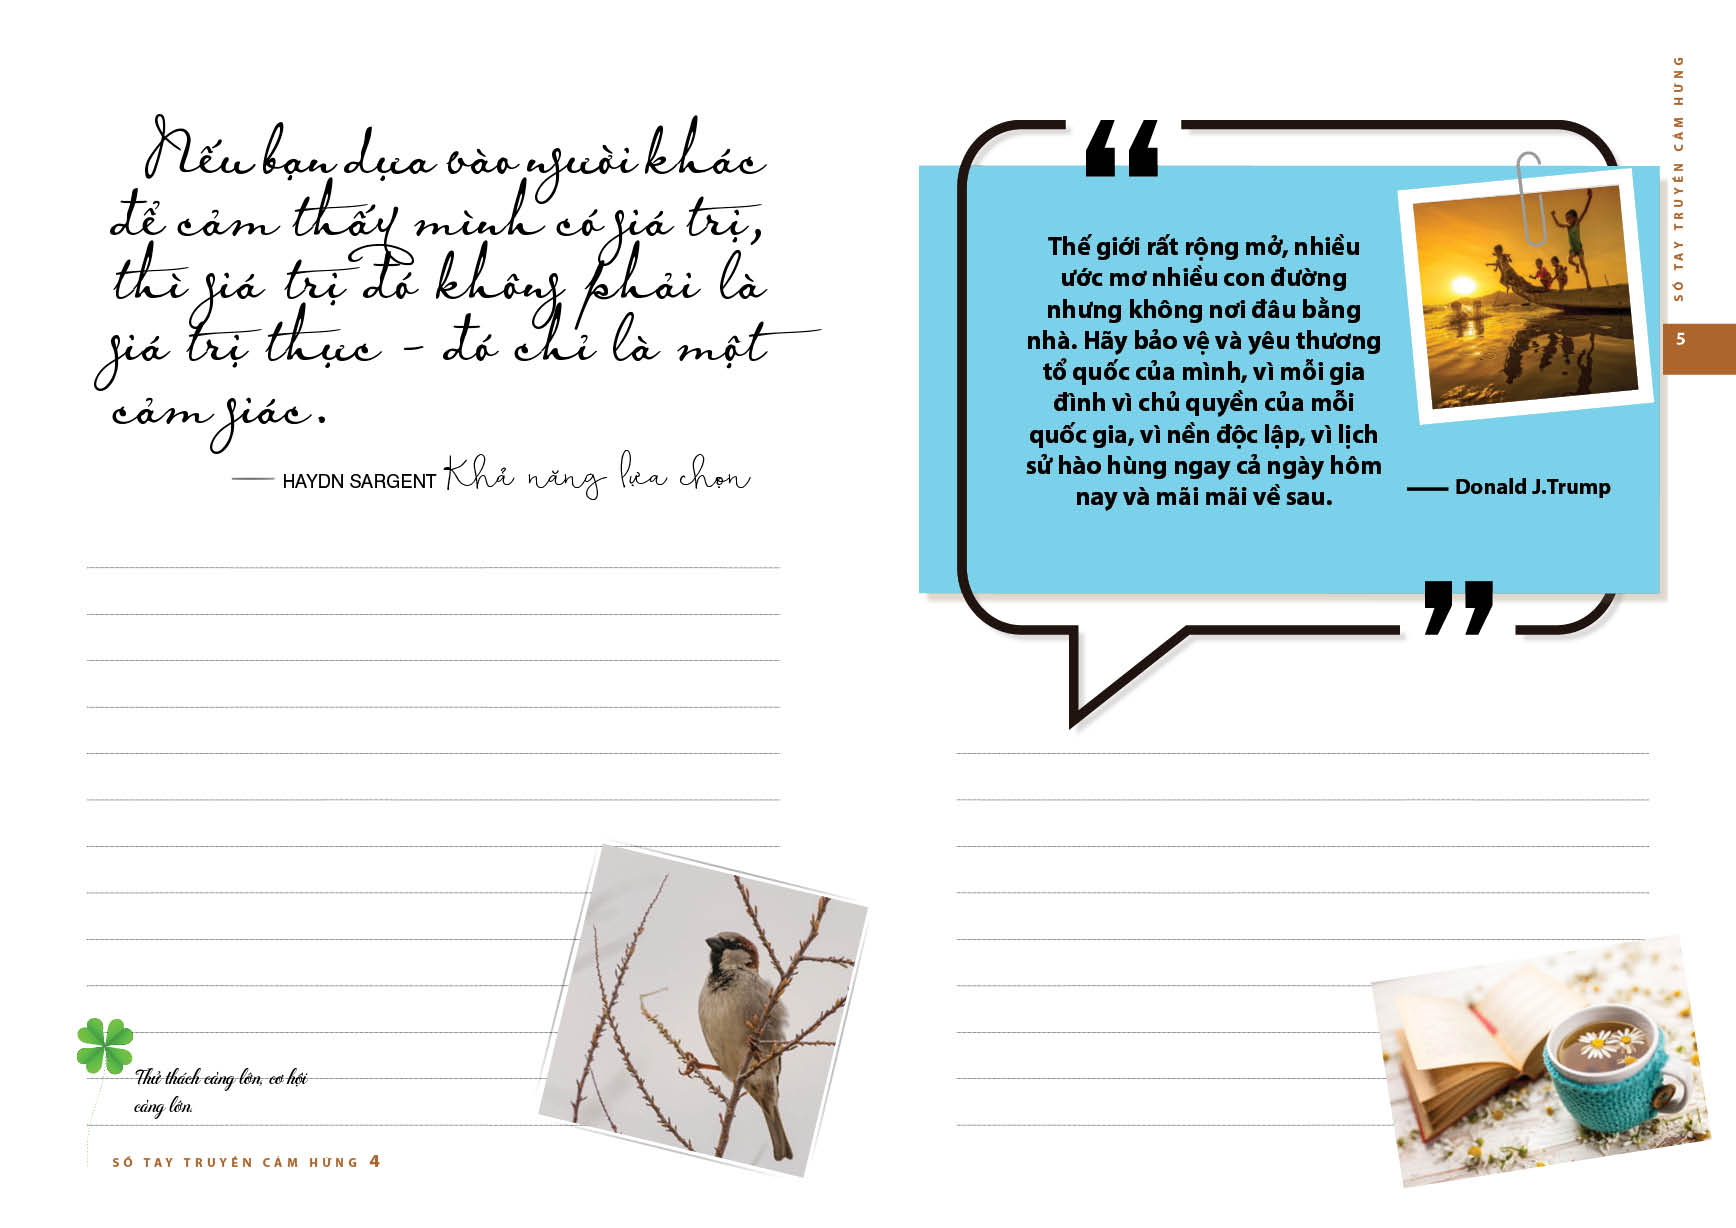 Nếu bạn dựa vào người khác
để cảm thấy mình có giá trị,
thì giá trị đó không phải là
giá trị thực - đó chỉ là một
cảm giác.
HAYDN SARGENT Khả năng lựa chọn
Thử thách càng lớn, cơ hội
càng lớn.
SỔ TAY TRUYỀN CẢM HỨNG 4
“
Thế giới rất rộng mở, nhiều
ước mơ nhiều con đường
nhưng không nơi đâu bằng
nhà. Hãy bảo vệ và yêu thương
tổ quốc của mình, vì mỗi gia
đình vì chủ quyền của mỗi
quốc gia, vì nền độc lập, vì lịch
sử hào hùng ngay cả ngày hôm
nay và mãi mãi về sau.
— Donald J.Trump
”
SỔ TAY TRUYỀN CẢM HỨNG
5